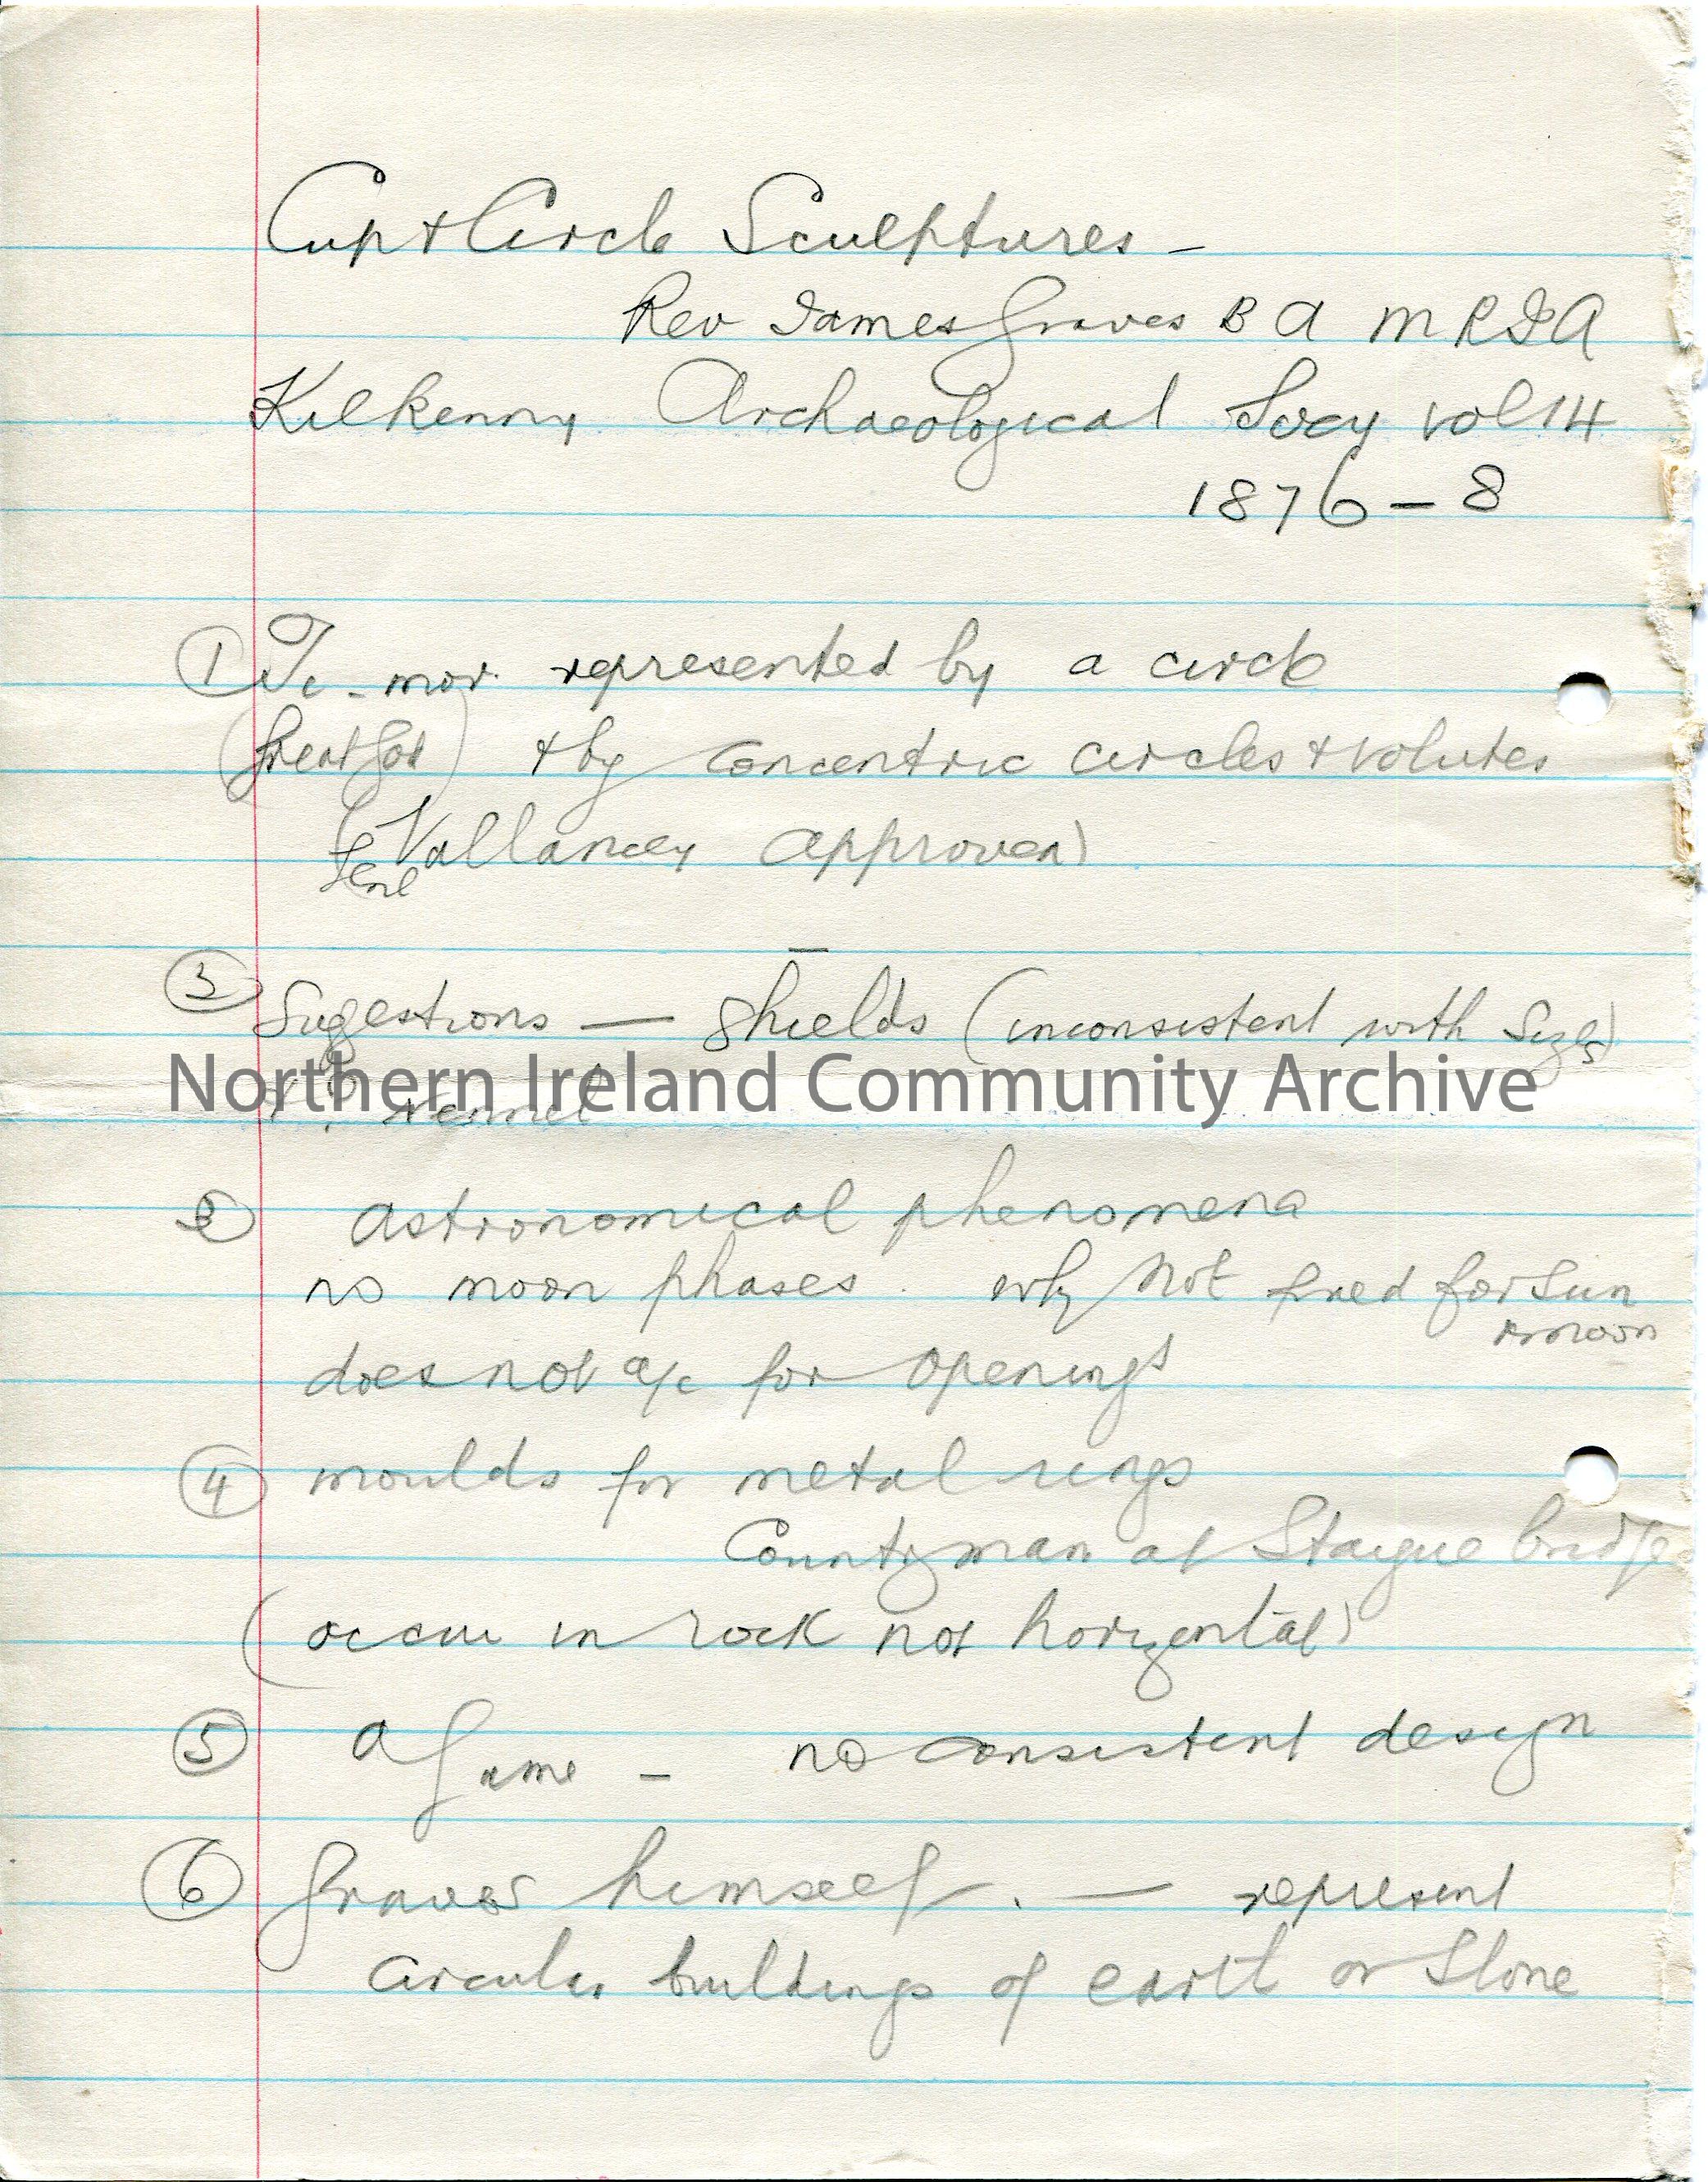 Cup + Circle Sculptures -
Rev James Graves B A M R I A
Kilkenny Archaeological Socy vol 14
1876 - 8
① Ti-mor. represented by a circle
(Great God) + by concentric circles + volutes
(Genl Vallancey approves)
③ Sugestions — Shields (inconsistent with sizes)
Northern Ireland Community Archive
② Astronomical phenomena
no moon phases. why not fixed for sun
+ moon
does not a/c for openings
④ moulds for metal rings
Countyman at Staigue bridge
(occur in rock not horizontal)
⑤ a Game - no consistent design
⑥ Graves himself. — represent
circular buildings of earth or stone